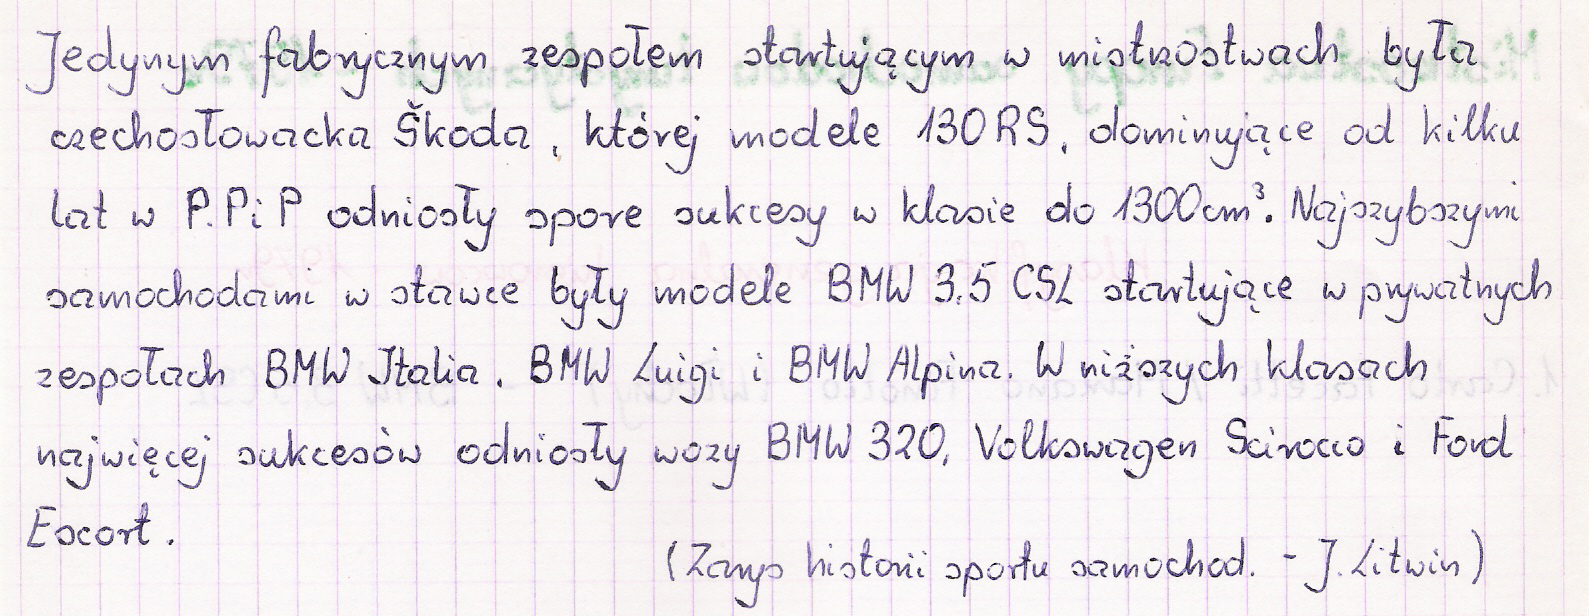 Jedynym fabrycznym zespołem startującym w mistrzostwach była
czechosłowacka Škoda, której modele 130RS, dominujące od kilku
lat w P.PiP odniosły spore sukcesy w klasie do 1300cm³. Najszybszymi
samochodami w stawce były modele BMW 3.5 CSL startujące w prywatnych
zespołach BMW Italia, BMW Luigi i BMW Alpina. W niższych klasach
najwięcej sukcesów odniosły wozy BMW 320, Volkswagen Scirocco i Ford
Escort.
(Zarys historii sportu samochod. - J. Litwin)